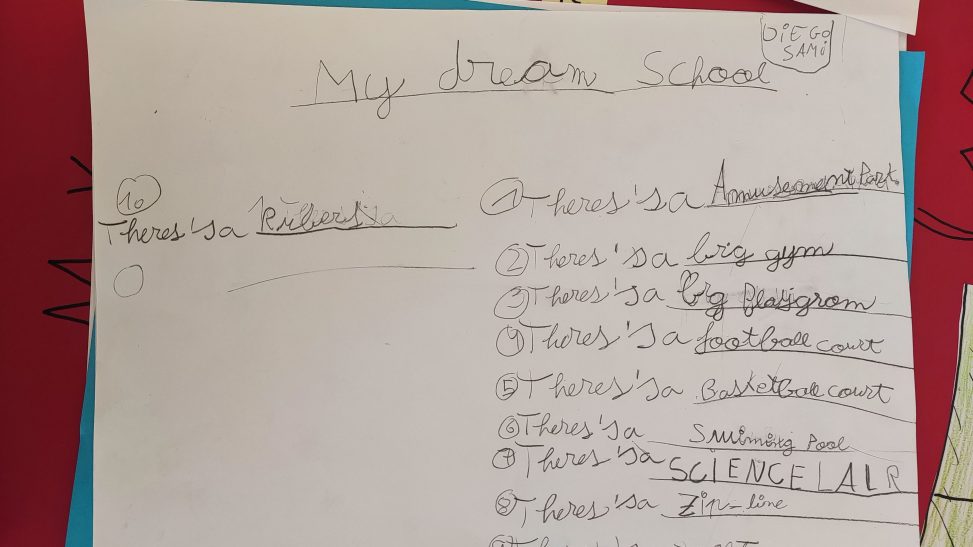 DiEGO
SAMi
My dream School
10
Theres'sa
1 Theres'sa Amusement Park
2 Theres'sa big gym
3 Theres'sa big Playgrom
4 Theres'sa football court
5 Theres'sa Basketball court
6 Theres'sa Swiming Pool
7 Theres'sa SCIENCE LALR
8 Theres'sa Zip-line